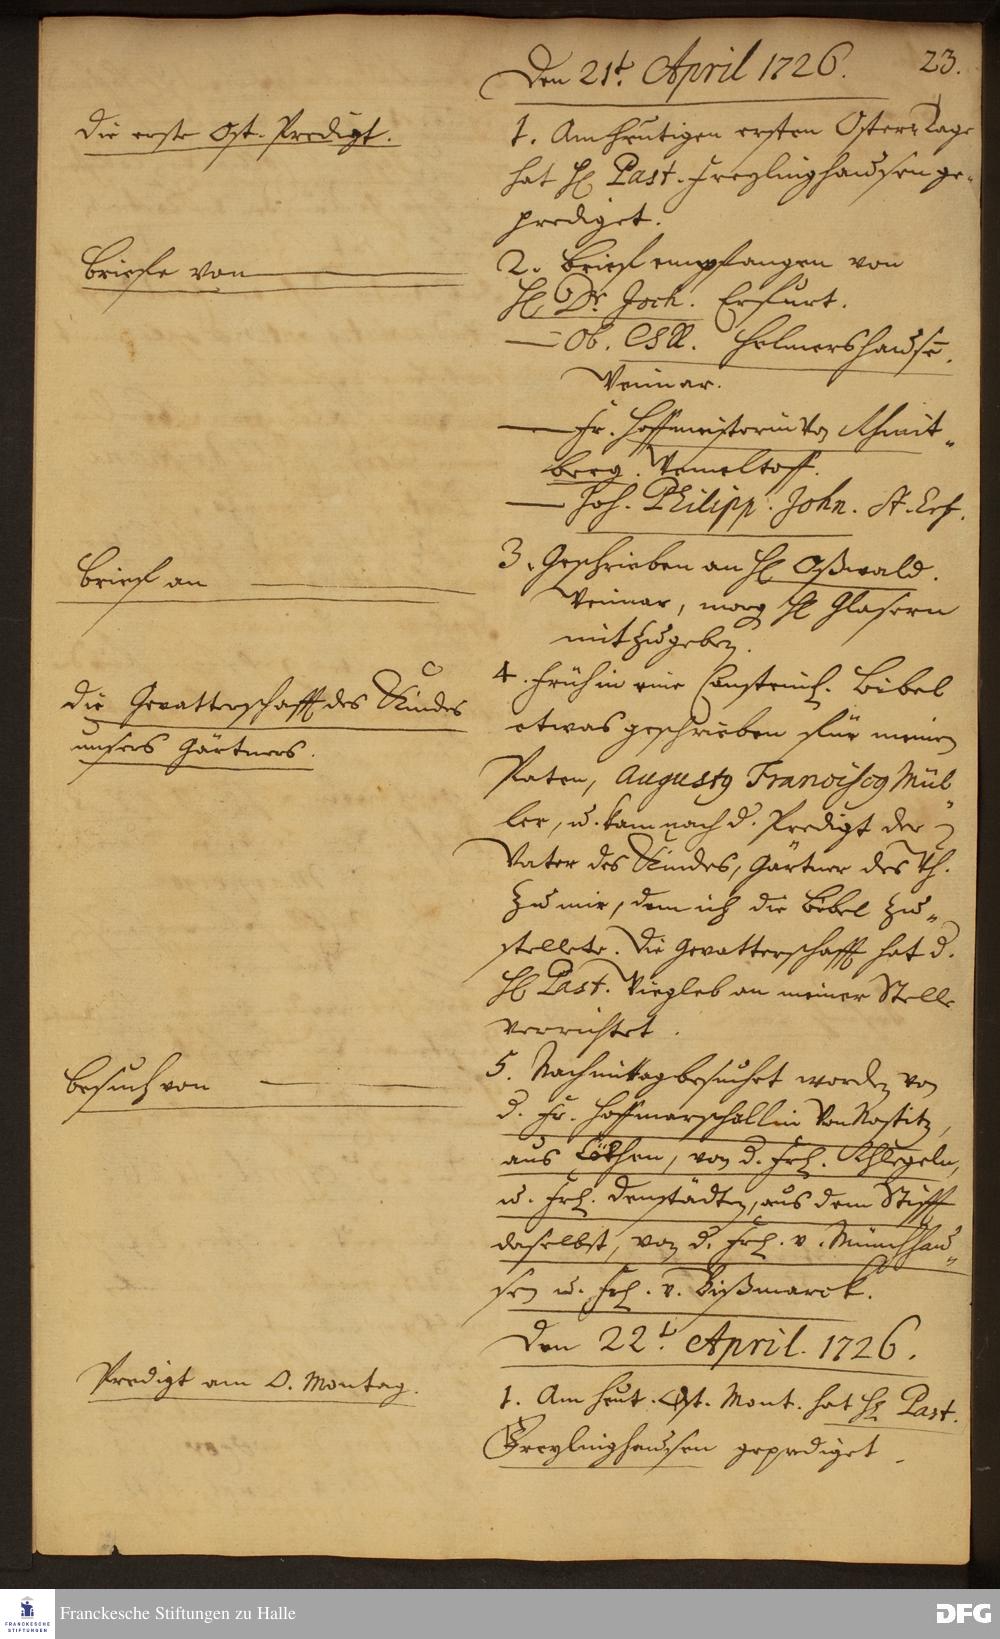 23.
Den 21t. April 1726.
Die erste Ost. Predigt.
1. Am heutigen ersten Oster-Tage
hat H. Past. Freylinghausen ge-
prediget.
Briefe von
2. Brief empfangen von
H. Dr. Joch. Erfurt.
— Ob. Helmershausē.
Weimar.
— Fr. Hoffmeisterin von
berg.
— Joh. Philipp. John. St. Erf.
Brief an
3. Geschrieben an H. Oßwald.
Weimar, morg H. Glasern
mitzugeben.
Die Gevatterschafft des Kindes
unsers Gärtners.
4. Früh in eine Cansteinis. Bibel
etwas geschrieben für meinen
Paten, Augustg Franciscg Mül
ler, u. kam nach d. Predigt der
Vater des Kindes, Gärtner des
zu mir, dem ich die Bibel zu„
stellete. Die Gevatterschafft hat d.
H. Past. Wiegleb an meiner Stelle
verrichtet.
Besuch von
5. Nachmittag besuchet worden von
d. Fr. Hoffmarschallin von Nostitz,
aus Cöthen, von d. Frl. Schlegeln,
u. Frl. Denstädten, aus dem Stifft
daselbst, von d. Frl. v. Münchhau„
sen u. Frl. v. Bißmarck.
Den 22t. April. 1726.
Predigt am O. Montag.
1. Am heut. Ost. Mont. hat H. Past.
Freylinghausen geprediget.
FRANCKESCHE
STIFTUNGEN
Franckesche Stiftungen zu Halle
DFG